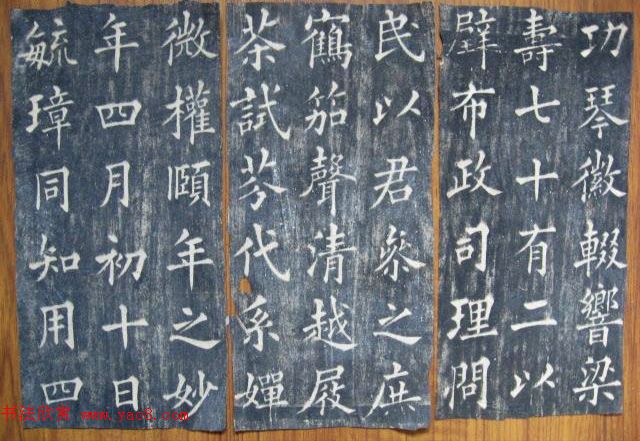 功琴徽輟響梁
壽七十有二以
辟布政司理問
民以君參之庶
鶴笳聲清越屐
茶試芬代系嬋
微權頤年之妙
年四月初十日
毓璋同知用四
书法欣赏 www.yac8.com